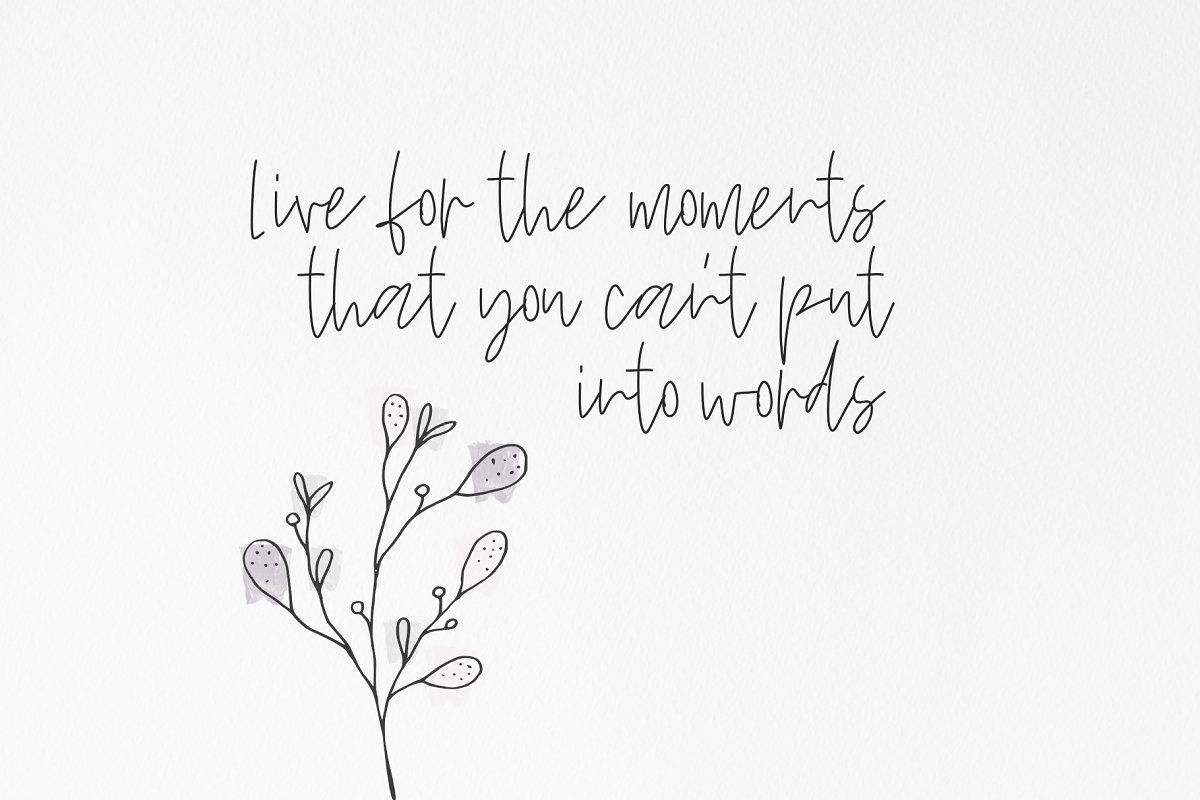 Live for the moments
that you can't put
into words